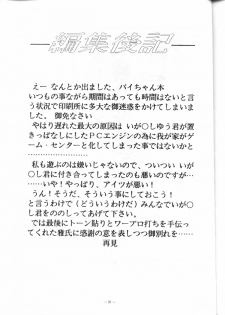 編集後記
えー なんとか出ました、パイちゃん本
いつもの事ながら期間はあっても時間はないと言
う状況で印刷所に多大な御迷惑をかけてしまいま
した。御免なさい
やはり遅れた最大の原因は いが○しゆう君が置
きっぱなしにしたＰＣエンジンの為に我が家がゲ
ーム・センターと化してしまった事ではないかと
・・・・・・・・・・・・・・・・・・・・・・
私も遊ぶのは嫌いじゃないので、ついつい いが
○し君に付き合ってしまったのも悪いのですが・
・いや！やっぱり、アイツが悪い！
うん！そうだ、そういう事にしておこう！
と言うわけで（どういうわけだ）みんなでいが○
し君をののしってあげて下さい。
では最後にトーン貼りとワープロ打ちを手伝っ
てくれた雅氏に感謝の意を表しつつ御別れを・・
再見